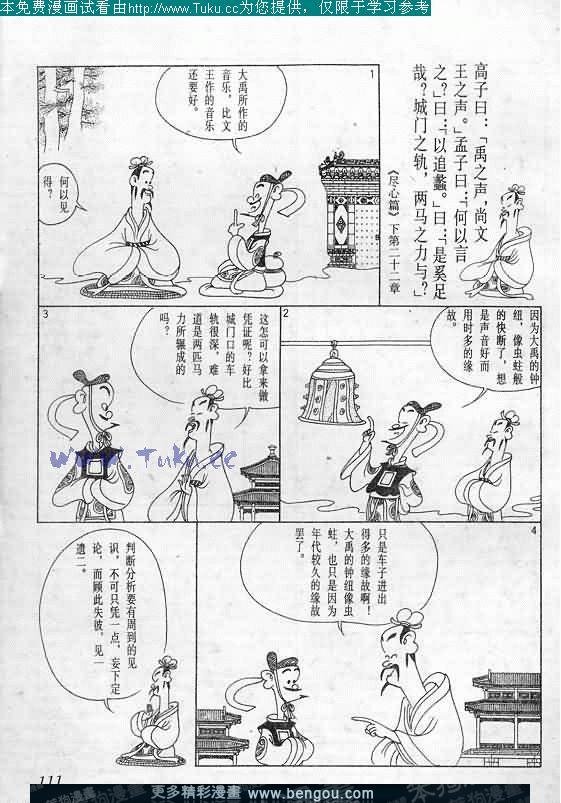 本免费漫画试看由http://www.Tuku.cc为您提供，仅限于学习参考
高子曰：「禹之声，尚文
王之声。」孟子曰：「何以言
之？」曰：「以追蠡。」曰：「是奚足
哉？城门之轨，两马之力与？」
《尽心篇》下第二十二章
1
大禹所作的
音乐，比文
王作的音乐
还要好。
何以见
得？
2
因为大禹的钟
纽，像虫蛀般
的快断了，想
是声音好而
用时多的缘
故。
3
这怎可以拿来做
凭证呢？好比
城门口的车
轨很深，难
道是两匹马
力所辗成的
吗？
www.Tuku.cc
4
只是车子进出
得多的缘故啊！
大禹的钟纽像虫
蛀，也只是因为
年代较久的缘故
罢了。
判断分析要有周到的见
识，不可只凭一点，妄下定
论，而顾此失彼，见一
遗二。
111
更多精彩漫畫 www.bengou.com